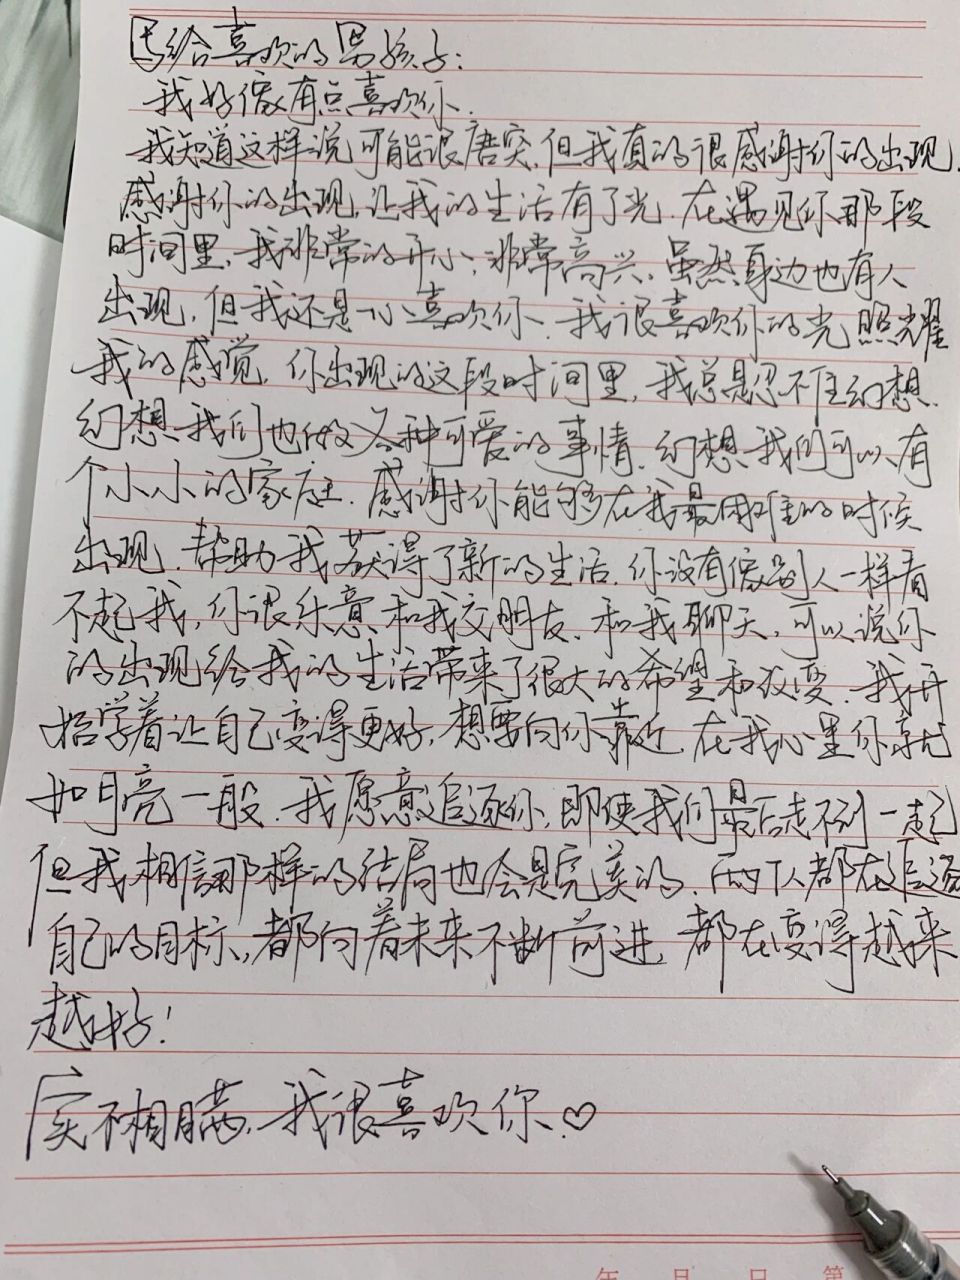 写给喜欢的男孩子:
我好像有点喜欢你.
我知道这样说可能很唐突,但我真的很感谢你的出现.
感谢你的出现,让我的生活有了光.在遇见你那段
时间里,我非常的开心,非常高兴.虽然身边也有人
出现,但我还是喜欢你.我很喜欢你的光照耀
我的感觉.你出现的这段时间里,我总是忍不住幻想.
幻想我们也做各种可爱的事情.幻想我们可以有
个小小的家庭.感谢你能够在我最困难的时候
出现.帮助我获得了新的生活.你没有像别人一样看
不起我,你很乐意和我交朋友.和我聊天,可以说你
的出现给我的生活带来了很大的希望和改变.我开
始学着让自己变得更好,想要向你靠近.在我心里你就
如月亮一般.我愿意追逐你,即使我们最后走不到一起
但我相信那样的结局也会是完美的.两个人都在追逐
自己的目标,都向着未来不断前进,都在变得越来
越好!
实不相瞒,我很喜欢你.♡
年 月 日 第